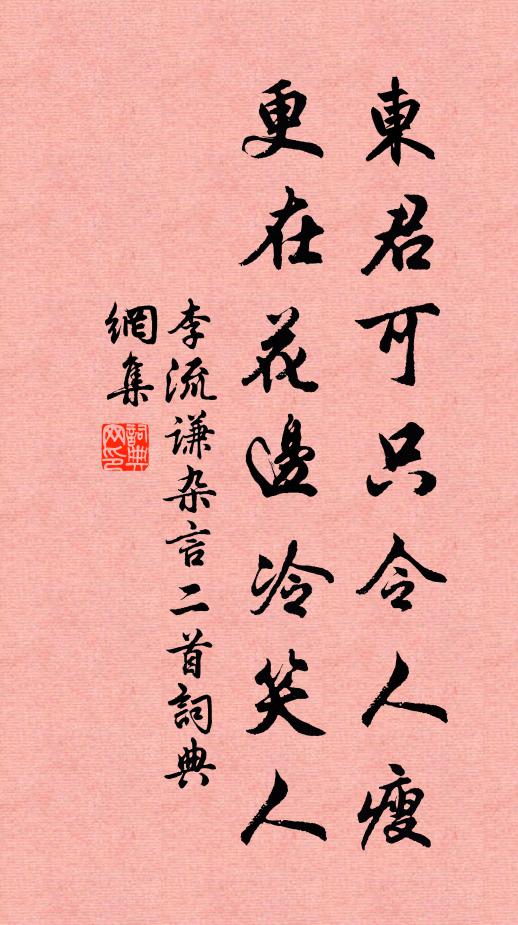 東君可只令人瘦
更在花邊冷笑人
李流谦杂言二首詞典
網集
詞典
网印